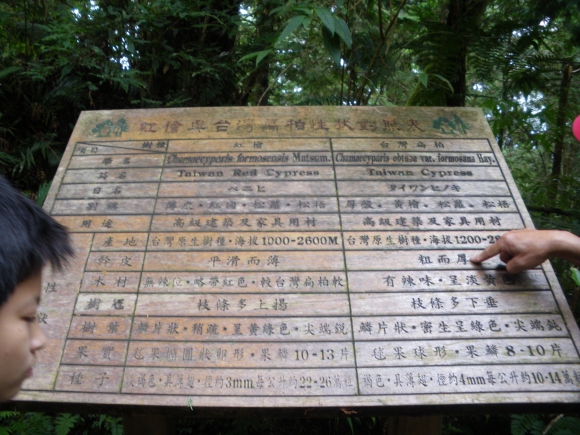 紅檜與台灣扁柏性狀對照表
樹種 紅檜 台灣扁柏
學名 Chamaecyparis formosensis Matsum. Chamaecyparis obtusa var. formosana Hay.
英名 Taiwan Red Cypress Taiwan Cypress
日名 ベニヒ タイワンヒノキ
別稱 薄皮、松蘿、松梧 厚殼、黃檜、松蘿、松梧
用途 高級建築及家具用材 高級建築及家具用材
性狀
產地 台灣原生樹種，海拔1000-2600M 台灣原生樹種，海拔1200-28
樹皮 平滑而薄 粗而厚
木材 無辣味，略帶紅色，較台灣扁柏軟 有辣味，呈淡黃色
樹梢 枝條多上揚 枝條多下垂
樹葉 鱗片狀，稍疏，呈黃綠色，尖端銳 鱗片狀，密生呈綠色，尖端鈍
果實 毬果橢圓狀卵形，果鱗10-13片 毬果球形，果鱗8-10片
種子 淡褐色，具薄翅，徑約3mm每公升約22-26萬粒 褐色，具薄翅，徑約4mm每公升約10-14萬粒